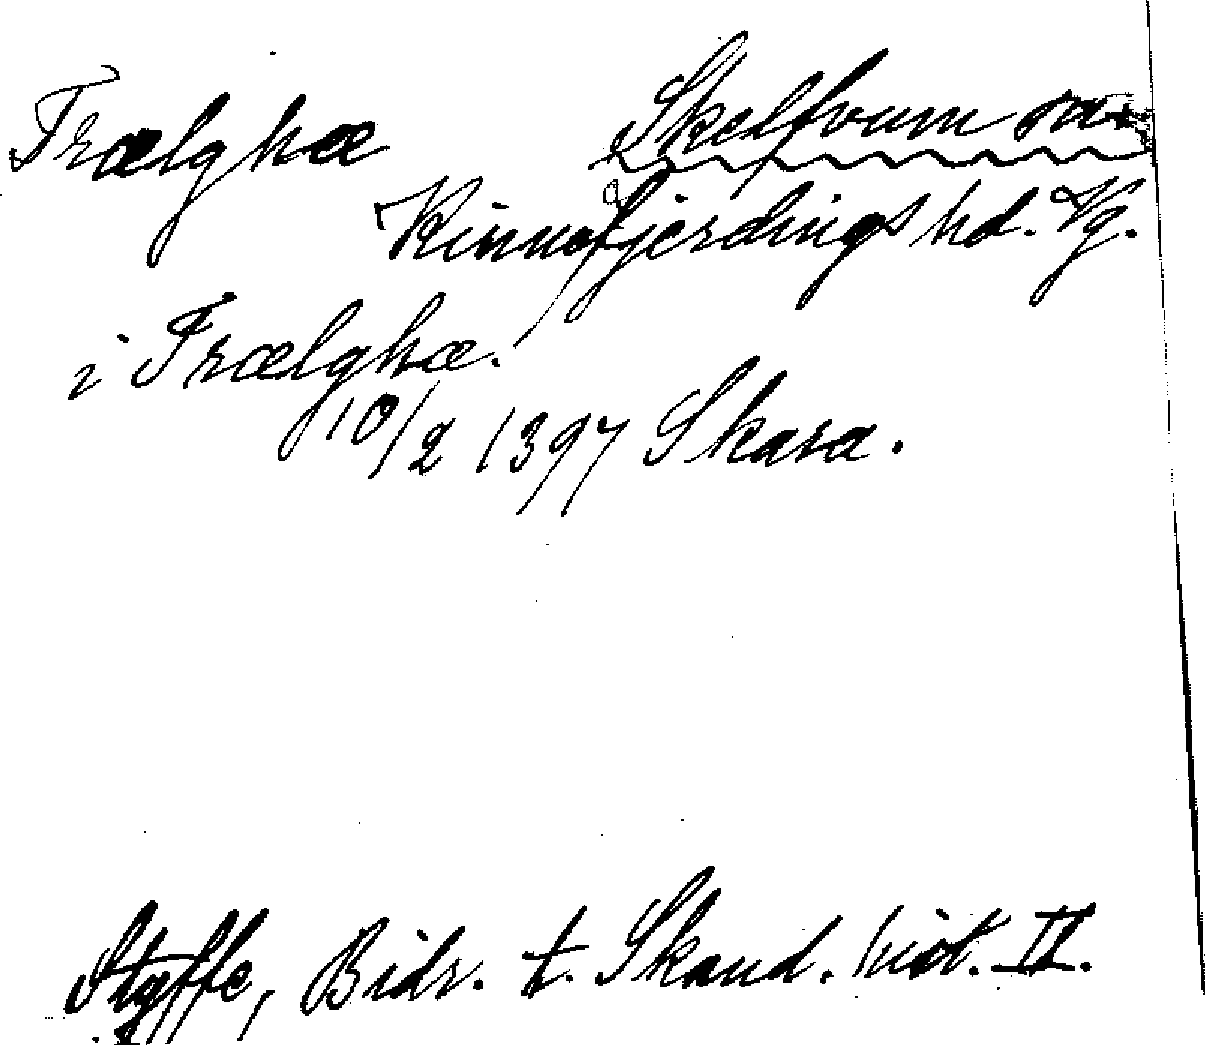 Trælghæ Skelfvum sn.
Kinnefjerdings hd. Vg.
i Trælghæ.
10/2 1397 Skara.
Styffe, Bidr. t. Skand. hist. II.